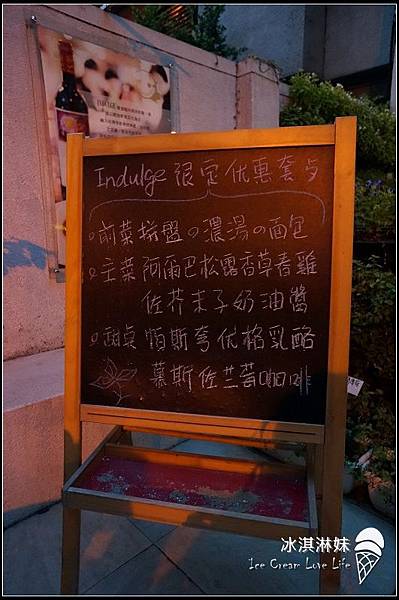 Indulge 限定优惠套歺
前菜拼盤。濃湯。面包
主菜 阿爾巴松露香草春雞
佐芥末子奶油醬
甜点 帕斯夸优格乳酪
慕斯佐兰莓咖啡
冰淇淋妹
Ice Cream Love Life